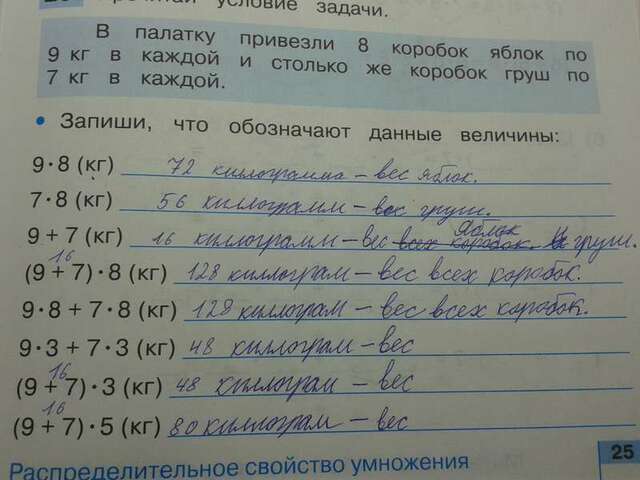 Прочитай условие задачи.
В палатку привезли 8 коробок яблок по
9 кг в каждой и столько же коробок груш по
7 кг в каждой.
• Запиши, что обозначают данные величины:
9·8 (кг) 72 килограмма – вес яблок.
7·8 (кг) 56 киллограмм – вес груш.
яблок
9 + 7 (кг) 16 киллограмм – вес всех коробок. и груш.
16
(9 + 7)·8 (кг) 128 киллограм – вес всех коробок.
9·8 + 7·8 (кг) 128 киллограм – вес всех коробок.
9·3 + 7·3 (кг) 48 киллограм – вес
16
(9 + 7)·3 (кг) 48 киллограм – вес
16
(9 + 7)·5 (кг) 80 киллограм – вес
25
Распределительное свойство умножения